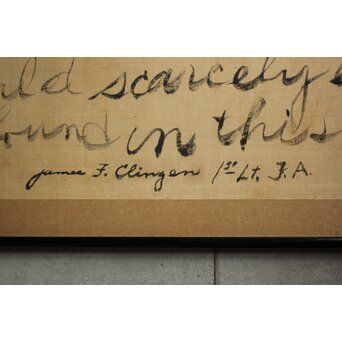 ld scarcely
ound in this
James F. Clingen 1st Lt. F.A.